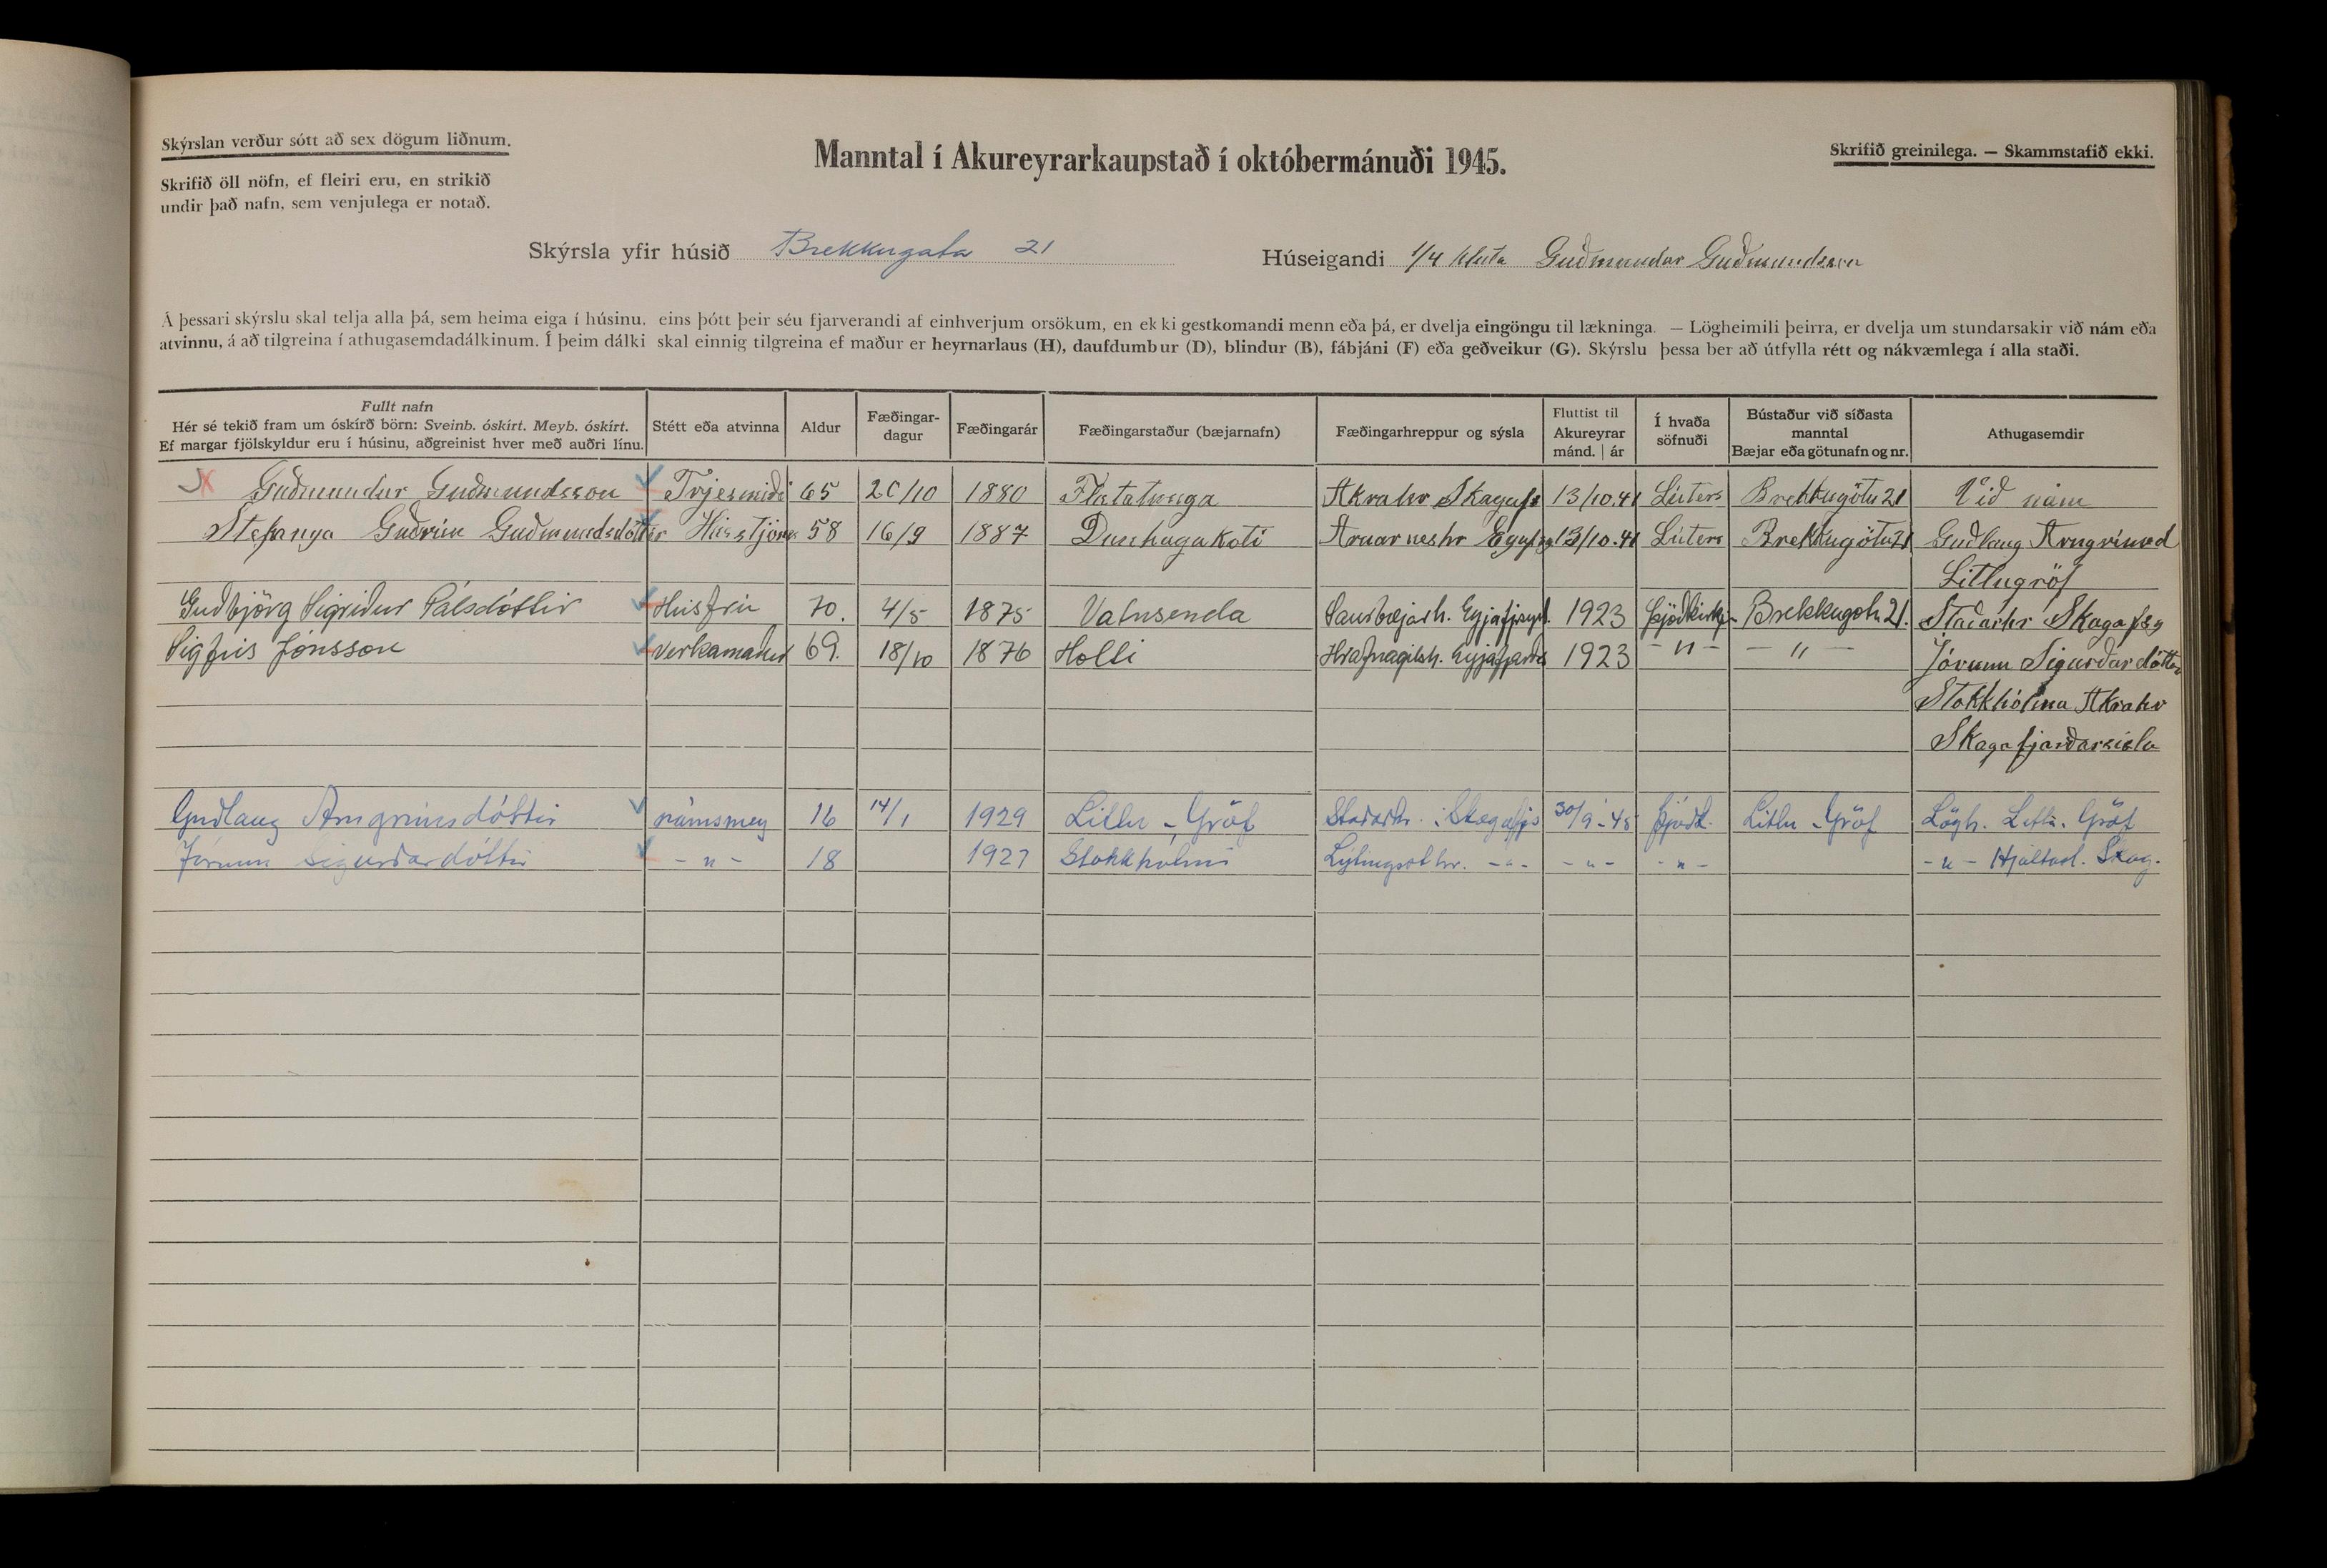 Skýrslan verður sótt að sex dögum liðnum.
Skrifið öll nöfn, ef fleiri eru, en strikið
undir það nafn, sem venjulega er notað.
Manntal í Akureyrarkaupstað í októbermánuði 1945.
Skrifið greinilega. — Skammstafið ekki.
Skýrsla yfir húsið Brekkugata 21
Húseigandi 1/4 hluta Guðmundur Guðmundsson
Á þessari skýrslu skal telja alla þá, sem heima eiga í húsinu, eins þótt þeir séu fjarverandi af einhverjum orsökum, en ekki gestkomandi menn eða þá, er dvelja eingöngu til lækninga. — Lögheimili þeirra, er dvelja um stundarsakir við nám eða
atvinnu, á að tilgreina í athugasemdadálkinum. Í þeim dálki skal einnig tilgreina ef maður er heyrnarlaus (H), daufdumbur (D), blindur (B), fábjáni (F) eða geðveikur (G). Skýrslu þessa ber að útfylla rétt og nákvæmlega í alla staði.
Fullt nafn
Hér sé tekið fram um óskírð börn: Sveinb. óskírt. Meyb. óskírt.
Ef margar fjölskyldur eru í húsinu, aðgreinist hver með auðri línu.
Stétt eða atvinna
Aldur
Fæðingar-
dagur
Fæðingarár
Fæðingarstaður (bæjarnafn)
Fæðingarhreppur og sýsla
Fluttist til
Akureyrar
mánd. | ár
Í hvaða
söfnuði
Bústaður við síðasta
manntal
Bæjar eða götunafn og nr.
Athugasemdir
Guðmundur Guðmundsson Trjesmiði 65 20/10 1880 Flatatunga Akrahr Skagafs 13/10.41 Lúters Brekkugötu 21 Við nám
Stefanya Guðrún Guðmundsdóttir Hússtjórn 58 16/9 1887 Dunhagakoti Arnarneshr 13/10.41 Lúters Brekkugötu 21 Guðlaug Arngrímsd
Litlugröf
Guðbjörg Sigríður Pálsdóttir Húsfrú 70. 4/5 1875 Vatnsenda Saurbæjarh. Eyjafjsýsl. 1923 Þjóðkirkj- Brekkugötu 21. Staðarhr Skagafsy
Sigfús Jónsson verkamaður 69. 18/10 1876 Holti Hrafnagilsh. Eyjafjarðs 1923 - " - - " - Jórunn Sigurðardóttir
Stokkhólma Akrahr
Skagafjarðarsísla
Guðlaug Arngrímsdóttir námsmey 16 14/1 1929 Litlu-Gröf Staðarhr. Skagafjs 30/9-45 Þjóðk. Litlu-Gröf Lögh. Litlu-Gröf
Jórunn Sigurðardóttir - " - 18 1927 Stokkhólmi Lýtingsst.hr. - " - - " - - " - - " - Hjaltad. Skag.